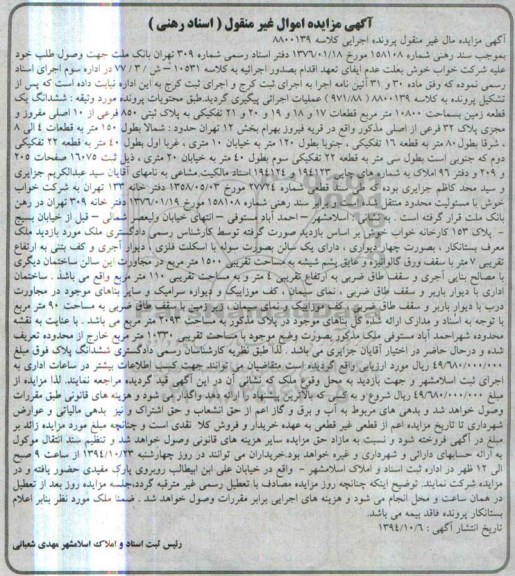 آگهی مزایده اموال غیر منقول ( اسناد رهنی )
آگهی مزایده مال غیر منقول پرونده اجرایی کلاسه ۸۸۰۰۱۳۹
بموجب سند رهنی شماره ۱۵۸۱۰۸ مورخ ۱۳۷۶/۰۱/۱۸ دفتر اسناد رسمی شماره ۳۰۹ تهران بانک ملت جهت وصول طلب خود
علیه شرکت خواب خوش بعلت عدم ایفای تعهد اقدام بصدور اجرائیه به کلاسه ۱۰۵۳۱ – ش / ۳ / ۷۷ در اداره سوم اجرای اسناد
رسمی نموده که وفق ماده ۳۰ و ۳۱ آئین نامه اجرا به اجرای ثبت کرج و اجرای ثبت کرج به این اداره نیابت داده است که پس از
تشکیل پرونده به کلاسه ۸۸۰۰۱۳۹ ( ۹۷۱/۸۸ ) عملیات اجرائی پیگیری گردید.طبق محتویات پرونده مورد وثیقه : ششدانگ یک
قطعه زمین بمساحت ۱۰۸۰۰ متر مربع قطعات ۱۷ و ۱۸ و ۱۹ و ۲۰ و ۲۱ تفکیکی به پلاک ثبتی ۸۵۰ فرعی از ۱۰ اصلی مفروز و
مجزی پلاک ۳۲ فرعی از اصلی مذکور واقع در قریه فیروز بهرام بخش ۱۲ تهران حدود : شمالا بطول ۱۵۰ متر به قطعات ۴ الی ۸
، شرقا بطول ۸۰ متر به قطعه ۱۶ تفکیکی ، جنوبا بطول ۱۲۰ متر به خیابان ۱۰ متری ، غربا اول بطول ۴۰ متر به قطعه ۲۲ تفکیکی
دوم که جنوبی است بطول سی متر به قطعه ۲۲ تفکیکی سوم بطول ۴۰ متر به خیابان ۲۰ متری ، ذیل ثبت ۱۶۰۷۵ صفحات ۲۰۵
و ۲۰۹ دفتر ۹۶ املاک به شماره های چاپی ۱۹۴۱۲۳ و ۱۹۴۱۲۴ اسناد مالکیت.مشاعی به نامهای آقایان سید عبدالکریم جزایری
و سید محمد کاظم جزایری بوده که طی سند قطعی شماره ۲۷۷۲۴ مورخ ۱۳۵۸/۰۵/۰۳ دفتر خانه ۱۳۳ تهران به شرکت خواب
خوش با مسئولیت محدود منتقل شده و برابر سند رهنی شماره ۱۵۸۱۰۸ مورخ ۱۳۷۶/۰۱/۱۹ دفتر خانه ۳۰۹ تهران در رهن
بانک ملت قرار گرفته است . به نشانی : اسلامشهر – احمد آباد مستوفی – انتهای خیابان ولیعصر شمالی – قبل از خیابان بسیج
– پلاک ۱۵۳ کارخانه خواب خوش بر اساس بازدید صورت گرفته توسط کارشناس رسمی دادگستری ملک مورد بازدید ملک
معرف بستانکار ، بصورت چهار دیواری ، دارای یک سالن بصورت سوله با اسکلت فلزی ، دیوار آجری و کف بتنی به ارتفاع
تقریبی ۷ متر با سقف ورق گالوانیزه و عایق پشم شیشه به مساحت تقریبی ۱۵۰۰ متر مربع در مجاورت این سالن ساختمان دیگری
با مصالح بنایی آجری و سقف طاق ضربی به ارتفاع تقریبی ۴ متر و به مساحت تقریبی ۱۱۰ متر مربع واقع می باشد . ساختمان
اداری با دیوار باربر و سقف طاق ضربی ، نمای سیمان ، کف موزاییک و دیواره سرامیک و سایر بناهای موجود در مجاورت
درب با دیوار باربر و سقف طاق ضربی ، کف موزاییک و نمای سیمان و آجری با سقف طاق ضربی به مساحت ۹۰ متر مربع
با توجه به اسناد و مدارک ارائه شده کل بناهای موجود در پلاک مذکور به مساحت ۲۰۹۳ متر مربع می باشد . با عنایت به نقشه
محدوده شهراحمد آباد مستوفی ملک مذکور بصورت وضع موجود با مساحت تقریبی ۱۰۳۳۰ متر مربع خارج از محدوده تعریف
شده و درحال حاضر در اختیار آقایان جزایری می باشد . لذا طبق نظریه کارشناسان رسمی دادگستری ششدانگ پلاک فوق مبلغ
۴۹/۶۸۰/۰۰۰/۰۰۰ ریال مورد ارزیابی واقع گردیده است متقاضیان می توانند جهت کسب اطلاعات بیشتر در ساعات اداری به
اجرای ثبت اسلامشهر و جهت بازدید به محل وقوع ملک که نشانی آن در این آگهی قید گردیده مراجعه نمایند. لذا مزایده از
مبلغ ۴۹/۶۸۰/۰۰۰/۰۰۰ ریال شروع و به کسی که بالاترین پیشنهاد را ارائه دهد واگذار می شود و هزینه های قانونی طبق مقررات
وصول خواهد شد و بدهی های مربوط به آب و برق و گاز اعم از حق انشعاب و حق اشتراک و نیز بدهی مالیاتی و عوارض
شهرداری تا تاریخ مزایده اعم از قطعی غیر قطعی به عهده خریدار و فروش کلا نقدی است و چنانچه مبلغ مورد مزایده زائد بر
مبلغ در آگهی فروخته شود و نسبت به مازاد حق مزایده سایر هزینه های قانونی وصول خواهد شد و تنظیم سند انتقال موکول
به ارائه حسابهای دارائی و شهرداری و غیره خواهد بود.خریداران می توانند در روز چهارشنبه ۱۳۹۴/۱۰/۲۳ از ساعت ۹ صبح
الی ۱۲ ظهر در اداره ثبت اسناد و املاک اسلامشهر – واقع در خیابان علی ابن ابیطالب روبروی پارک مفیدی حضور یافته و در
مزایده شرکت نمایند. توضیح اینکه چنانچه روز مزایده مصادف با تعطیل رسمی غیر مترقبه گردد،جلسه مزایده روز بعد از تعطیل
در همان ساعت و محل انجام می شود و هزینه های اجرایی برابر مقررات وصول خواهد شد . ضمنا ملک مورد نظر بنابر اعلام
بستانکار پرونده فاقد بیمه می باشد.
تاریخ انتشار آگهی : ۱۳۹۴/۱۰/۶
رئیس ثبت اسناد و املاک اسلامشهر مهدی شعبانی